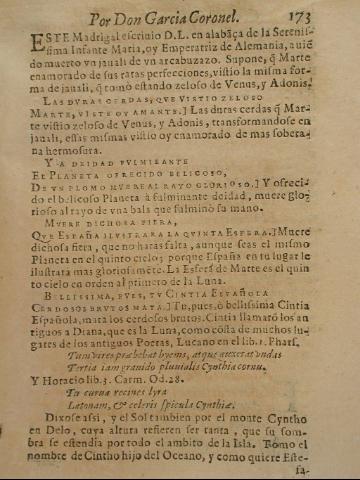 Por Don Garcia Coronel. 173
ESTE Madrigal escriuio D.L. en alabãça de la Serenis-
sima Infante Maria, oy Emperatriz de Alemania, auiẽ
do muerto vn jauali de vn arcabuzazo. Supone, q̃ Marte
enamorado de sus raras perfecciones, vistio la misma for-
ma de jauali, q̃ tomò estando zeloso de Venus, y Adonis.
LAS DVRAS CERDAS, QVE VISTIO ZELOSO
MARTE, VISTE OY AMANTE.] Las duras cerdas q̃ Mar-
te vistio zeloso de Venus, y Adonis, transformandose en
jauali, essas mismas vistio oy enamorado de mas sobera-
na hermosura.
Y A DEIDAD FVLMINANTE
EL PLANETA OFRECIDO BELICOSO,
DE VN PLOMO MVERE AL RAYO GLORIOSO.] Y ofreci-
do el belicoso Planeta à fulminante deidad, muere glo-
rioso al rayo de vna bala que fulminò su mano.
MVERE DICHOSA FIERA,
QVE ESPAÑA ILVSTRARA LA QVINTA ESFERA.] Muere
dichosa fiera, que no haras falta, aunque seas el mismo
Planeta en el quinto cielo; porque España en tu lugar le
ilustrata mas gloriosamẽte. La Esfera de Marte es el quin
to cielo en orden al primero de la Luna.
BELLISSIMA, PVES, TV CINTIA ESPAÑOLA
CERDOSOS BRVTOS MATA.] Tu, pues, ò bellissima Cintia
Española, mata los cerdosos brutos. Cintia llamarò los an
tiguos a Diana, que es la Luna, como cõsta de muchos lu-
gares de los antiguos Poetas, Lucano en el lib. 1. Phars.
Tum vires præbebat hyems, atque auxerat vndas
Tertia iam grauido pluuialis Cynthia cornu.
Y Horacio lib. 3. Carm. Od. 28.
Tu curua recines lyra
Latonam, & celeris spicula Cynthiæ.
Dixose assi, y el Sol tambien por el monte Cyntho
en Delo, cuya altura refieren ser tanta, que su som-
bra se estendia por todo el ambito de la Isla. Tomo el
nombre de Cintho hijo del Oceano, y como quiere Este-
fa-